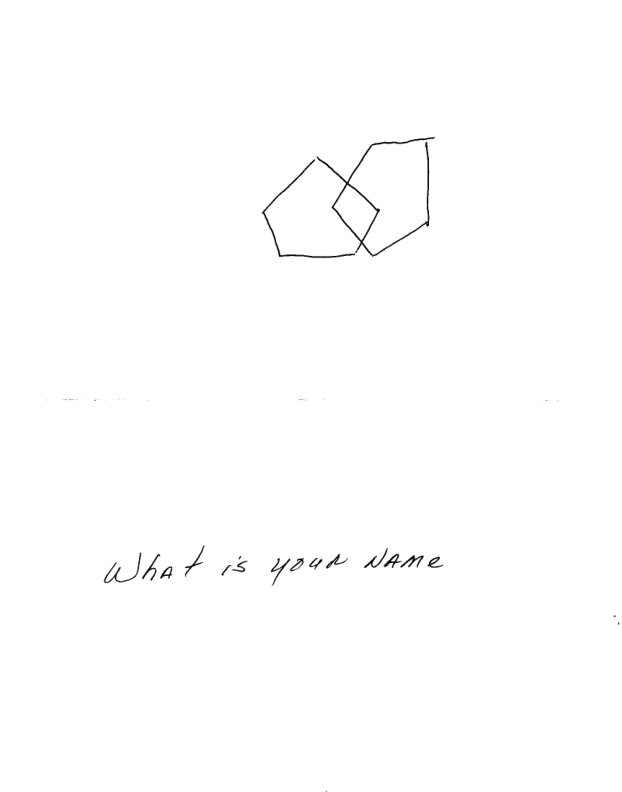 What is your NAMe